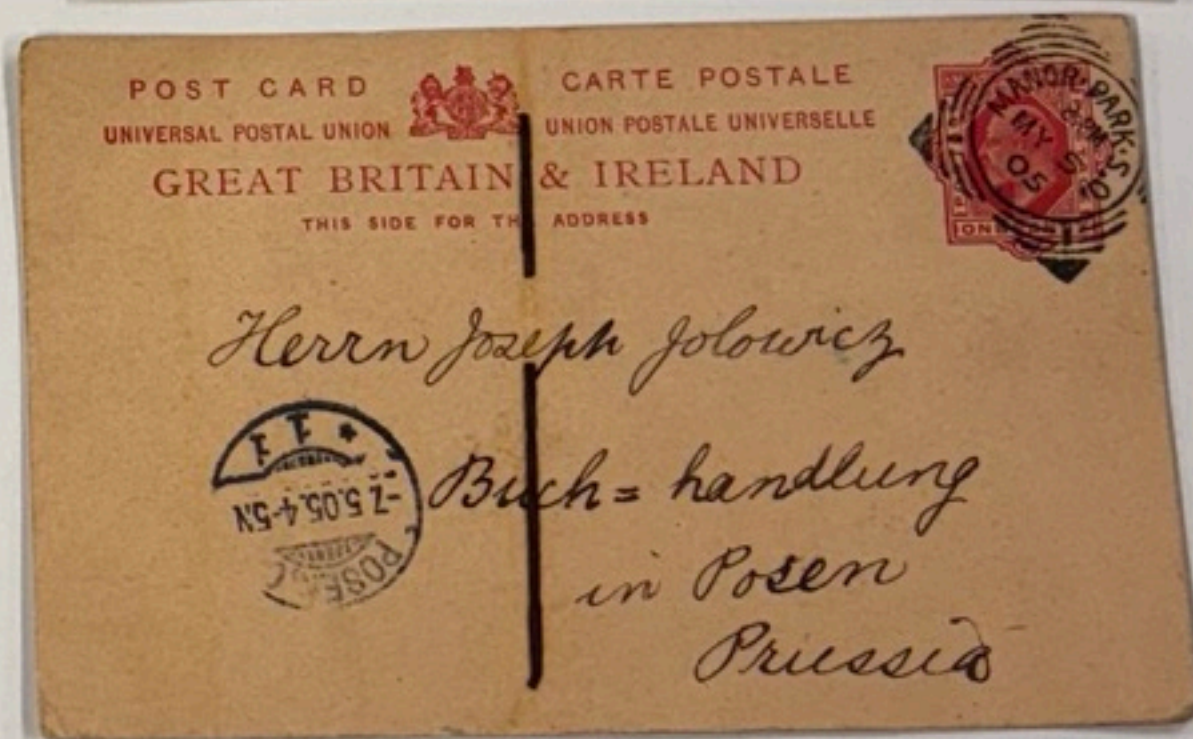 POST CARD CARTE POSTALE
UNIVERSAL POSTAL UNION UNION POSTALE UNIVERSELLE
GREAT BRITAIN & IRELAND
THIS SIDE FOR THE ADDRESS
MANOR·PARK·S.O.
MY 5
05
Herrn Joseph Jolowicz
Buch=handlung
in Posen
Prussia
POSEN
-7.5.05.4-5N
* 1 1